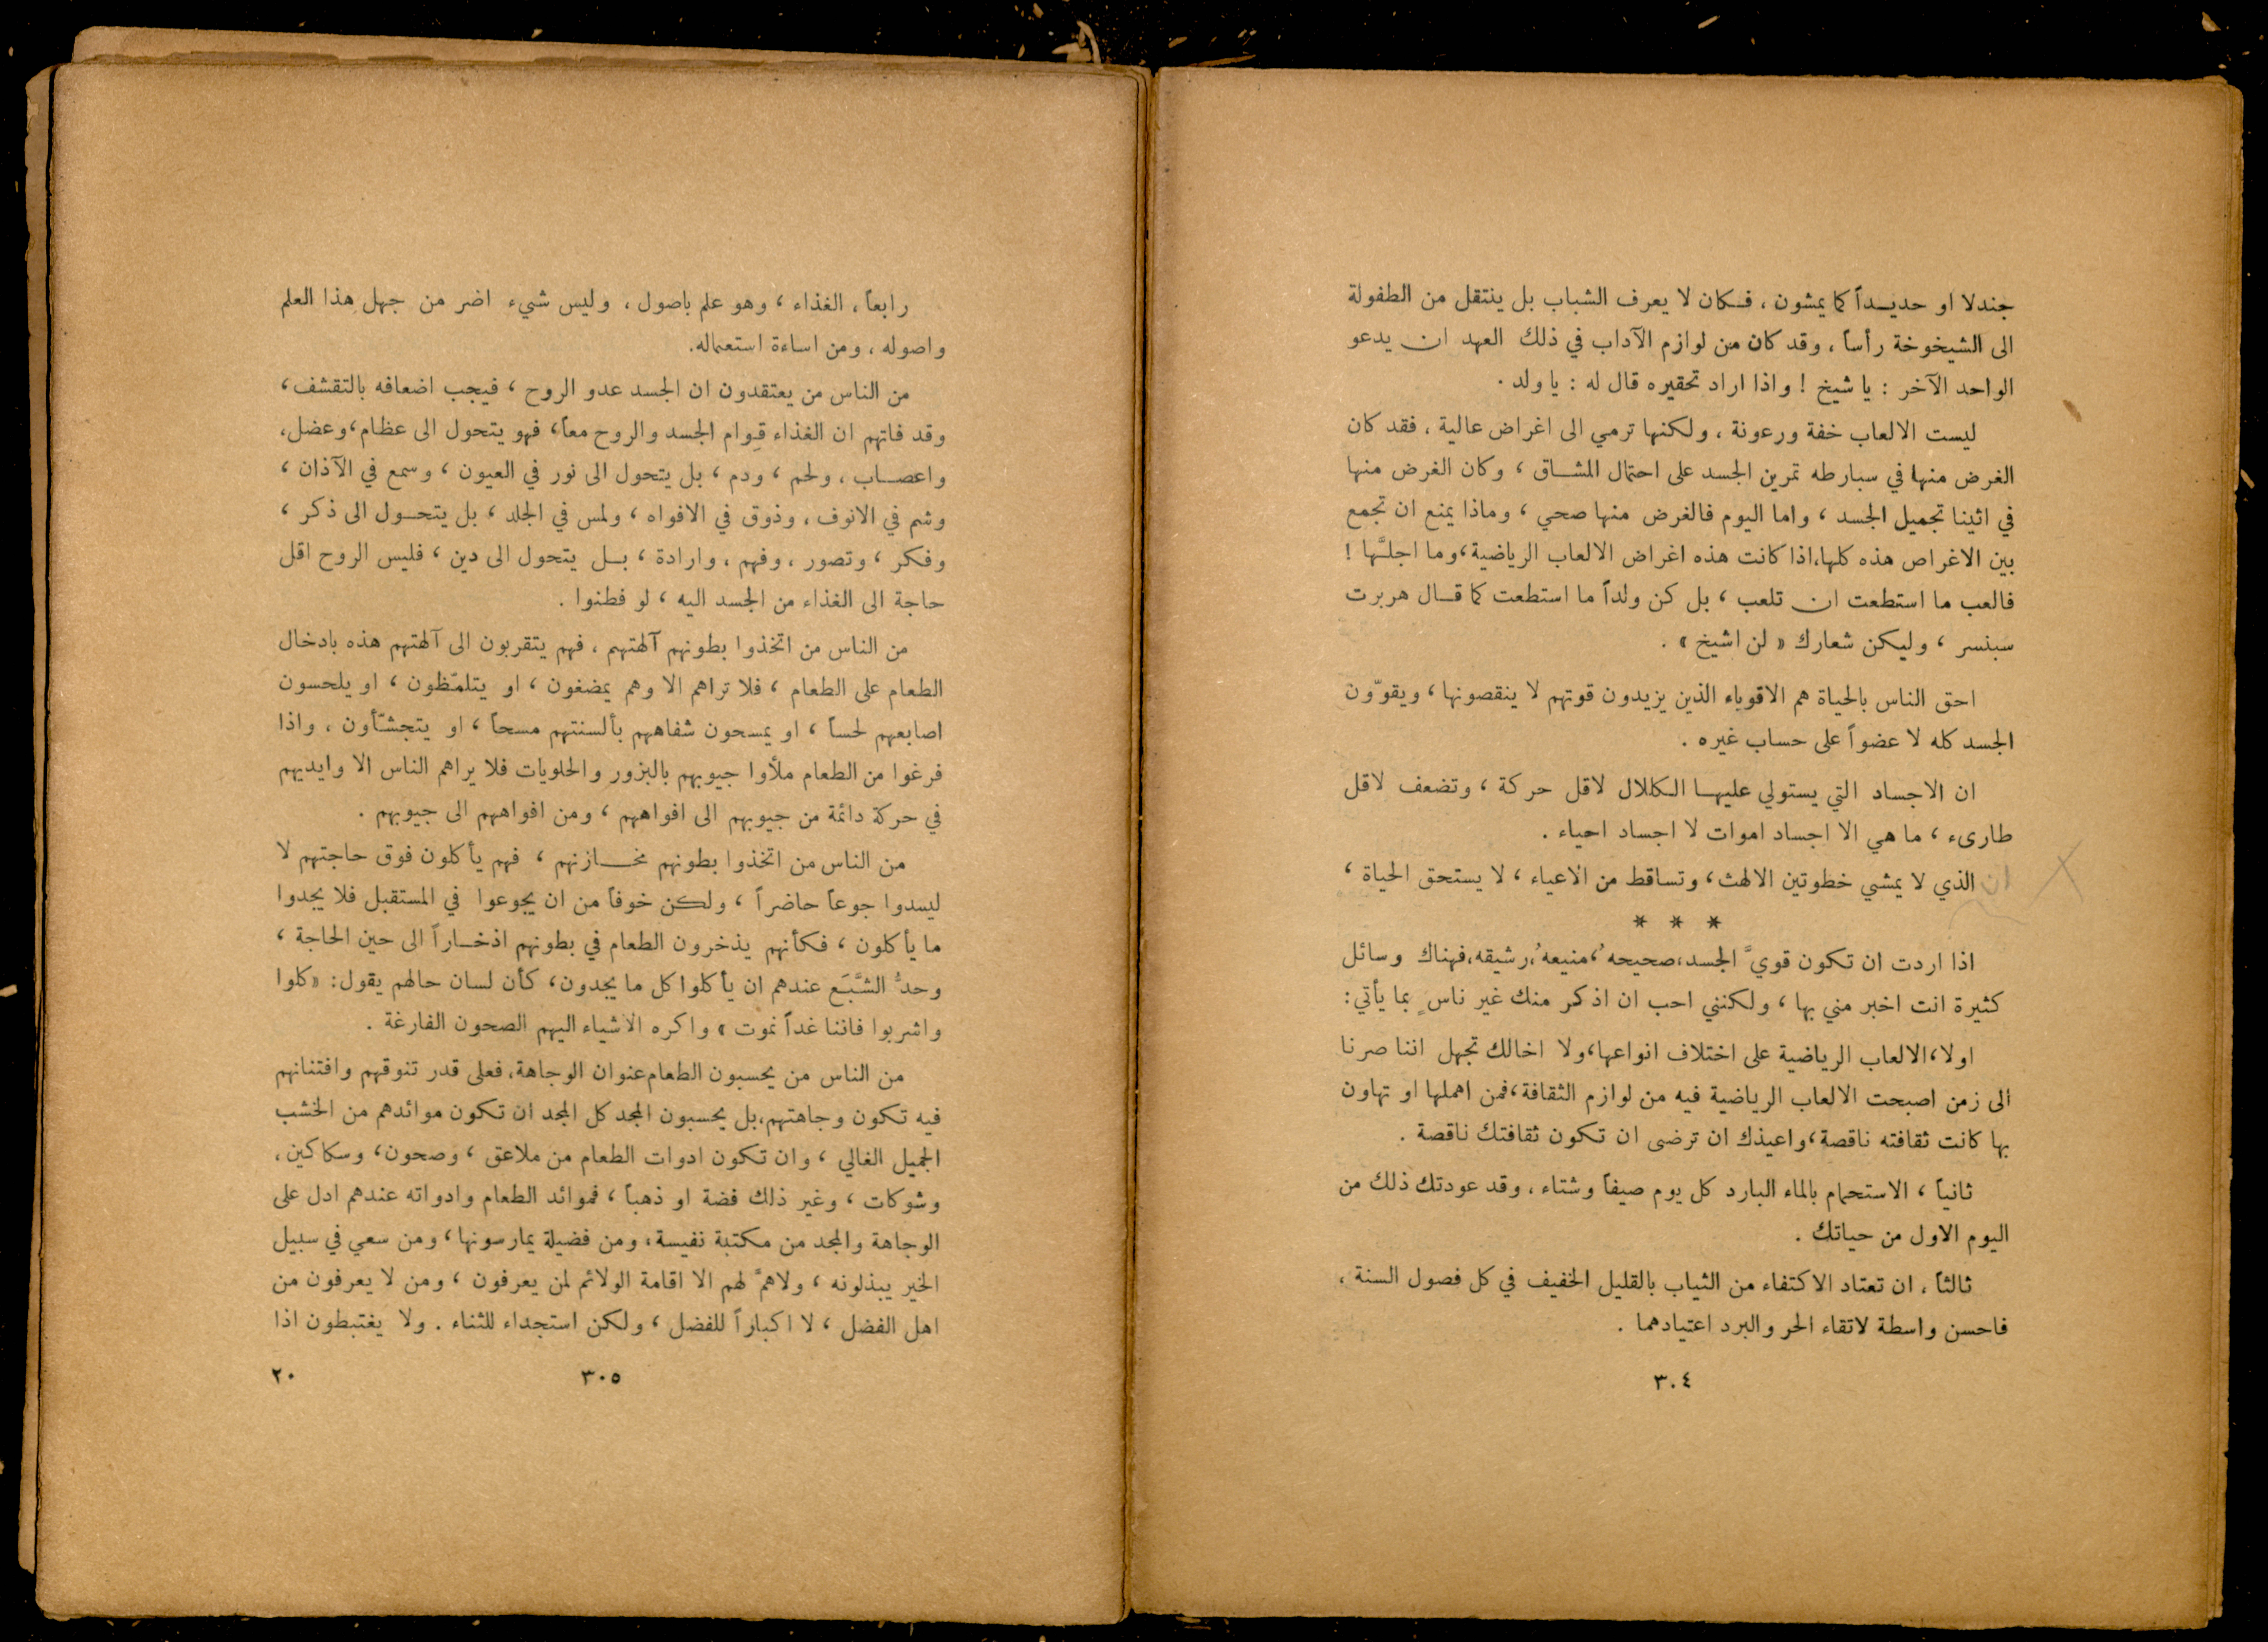 جندلا او حديداً كما يمشون ، فكان لا يعرف الشباب بل ينتقل من الطفولة
الى الشيخوخة رأساً ، وقد كان من لوازم الآداب في ذلك العهد ان يدعو
الواحد الآخر : يا شيخ ! واذا اراد تحقيره قال له : يا ولد .
ليست الالعاب خفة ورعونة ، ولكنها ترمي الى اغراض عالية ، فقد كان
الغرض منها في سبارطه تمرين الجسد على احتمال المشاق ، وكان الغرض منها
في اثينا تجميل الجسد ، واما اليوم فالغرض منها صحي ، وماذا يمنع ان تجمع
بين الاغراص هذه كلها،اذا كانت هذه اغراض الالعاب الرياضية،وما اجلَّها !
فالعب ما استطعت ان تلعب ، بل كن ولداً ما استطعت كما قال هربرت
سبنسر ، وليكن شعارك « لن اشيخ » .
احق الناس بالحياة هم الاقوياء الذين يزيدون قوتهم لا ينقصونها ، ويقوّون
الجسد كله لا عضواً على حساب غيره .
ان الاجساد التي يستولي عليها الكلال لاقل حركة ، وتضعف لاقل
طارىء ، ما هي الا اجساد اموات لا اجساد احياء .
ان الذي لا يمشي خطوتين الا لهث ، وتساقط من الاعياء ، لا يستحق الحياة ،
* * *
اذا اردت ان تكون قويَّ الجسد،صحيحهُ،منيعهُ،رشيقه،فهناك وسائل
كثيرة انت اخبر مني بها ، ولكنني احب ان اذكر منك غير ناسٍ بما يأتي :
اولا،الالعاب الرياضية على اختلاف انواعها،ولا اخالك تجهل اننا صرنا
الى زمن اصبحت الالعاب الرياضية فيه من لوازم الثقافة،فمن اهملها او تهاون
بها كانت ثقافته ناقصة،واعيذك ان ترضى ان تكون ثقافتك ناقصة .
ثانياً ، الاستحمام بالماء البارد كل يوم صيفاً وشتاء ، وقد عودتك ذلك من
اليوم الاول من حياتك .
ثالثاً ، ان تعتاد الاكتفاء من الثياب بالقليل الخفيف في كل فصول السنة ،
فاحسن واسطة لاتقاء الحر والبرد اعتيادهما .
٣٠٤
رابعاً ، الغذاء ، وهو علم باصول ، وليس شيء اضر من جهل هذا العلم
واصوله ، ومن اساءة استعماله.
من الناس من يعتقدون ان الجسد عدو الروح ، فيجب اضعافه بالتقشف ،
وقد فاتهم ان الغذاء قِوام الجسد والروح معاً، فهو يتحول الى عظام،وعضل،
واعصاب ، ولحم ، ودم ، بل يتحول الى نور في العيون ، وسمع في الآذان ،
وشم في الانوف ، وذوق في الافواه ، ولمس في الجلد ، بل يتحول الى ذكر ،
وفكر ، وتصور ، وفهم ، وارادة ، بل يتحول الى دين ، فليس الروح اقل
حاجة الى الغذاء من الجسد اليه ، لو فطنوا .
من الناس من اتخذوا بطونهم آلهتهم ، فهم يتقربون الى آلهتهم هذه بادخال
الطعام على الطعام ، فلا تراهم الا وهم يمضغون ، او يتلمّظون ، او يلحسون
اصابعهم لحساً ، او يمسحون شفاههم بألسنتهم مسحاً ، او يتجشّأون ، واذا
فرغوا من الطعام ملأوا جيوبهم بالبزور والحلويات فلا يراهم الناس الا وايديهم
في حركة دائمة من جيوبهم الى افواههم ، ومن افواههم الى جيوبهم .
من الناس من اتخذوا بطونهم مخازنهم ، فهم يأكلون فوق حاجتهم لا
ليسدوا جوعاً حاضراً ، ولكن خوفاً من ان يجوعوا في المستقبل فلا يجدوا
ما يأكلون ، فكأنهم يذخرون الطعام في بطونهم اذخاراً الى حين الحاجة ،
وحدُّ الشَّبَع عندهم ان يأكلوا كل ما يجدون، كأن لسان حالهم يقول : «كلوا
واشربوا فاننا غداً نموت » واكره الاشياء اليهم الصحون الفارغة .
من الناس من يحسبون الطعام عنوان الوجاهة،فعلى قدر تنوقهم وافتنانهم
فيه تكون وجاهتهم،بل يحسبون المجد كل المجد ان تكون موائدهم من الخشب
الجميل الغالي ، وان تكون ادوات الطعام من ملاعق ، وصحون، وسكاكين،
وشوكات ، وغير ذلك فضة او ذهباً ، فموائد الطعام وادواته عندهم ادل على
الوجاهة والمجد من مكتبة نفيسة ، ومن فضيلة يمارسونها ، ومن سعي في سبيل
الخير يبذلونه ، ولا همَّ لهم الا اقامة الولائم لمن يعرفون ، ومن لا يعرفون من
اهل الفضل ، لا اكباراً للفضل ، ولكن استجداء للثناء . ولا يغتبطون اذا
٣٠٥
٢٠